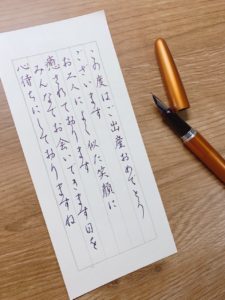 この度はご出産おめでとう
ございます 似た笑顔に
お二人によく
癒されております
みんなでお会いできます日を
心待ちにしておりますね